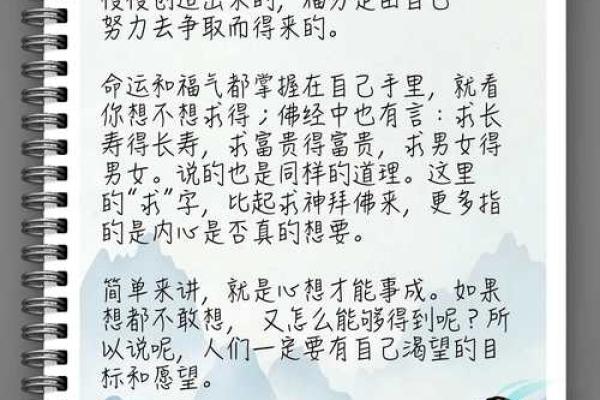 努力去争取而得来的。
命运和福气都掌握在自己手里，就看
你想不想求得；佛经中也有言：求长
寿得长寿，求富贵得富贵，求男女得
男女。说的也是同样的道理。这里
的“求”字，比起求神拜佛来，更多指
的是内心是否真的想要。
简单来讲，就是心想才能事成。如果
想都不敢想， 又怎么能够得到呢？所
以说呢，人们一定要有自己渴望的目
标和愿望。